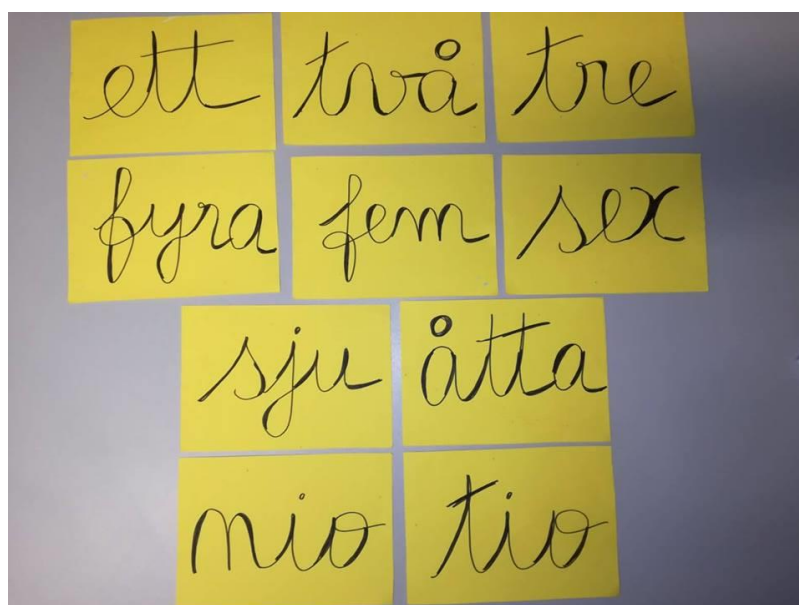 ett två tre
fyra fem sex
sju åtta
nio tio